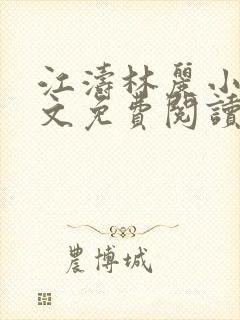 江濤林麗小
文免費閱讀
農博城